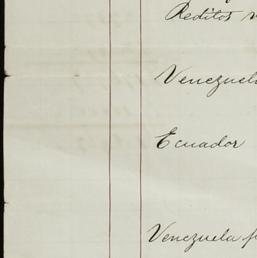 Reditos
Venezuela
Ecuador
Venezuela